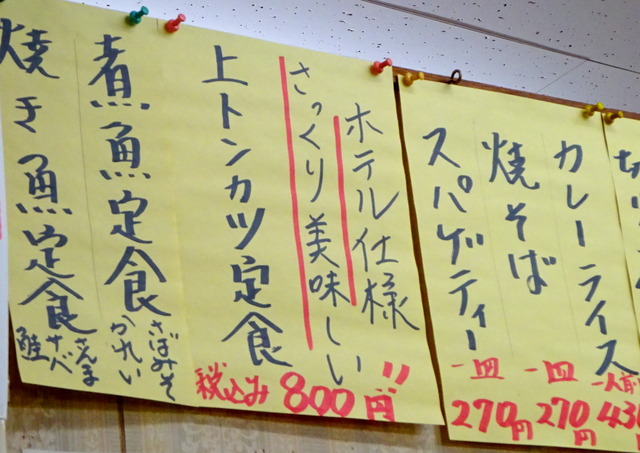 カレーライス
一人前
焼そば
一皿
270円
スパゲティー
一皿
270円
ホテル仕様
さっくり美味しい!!
上トンカツ定食
税込み 800円
煮魚定食
さばみそ
かれい
焼き魚定食
さんま
サバ
鮭